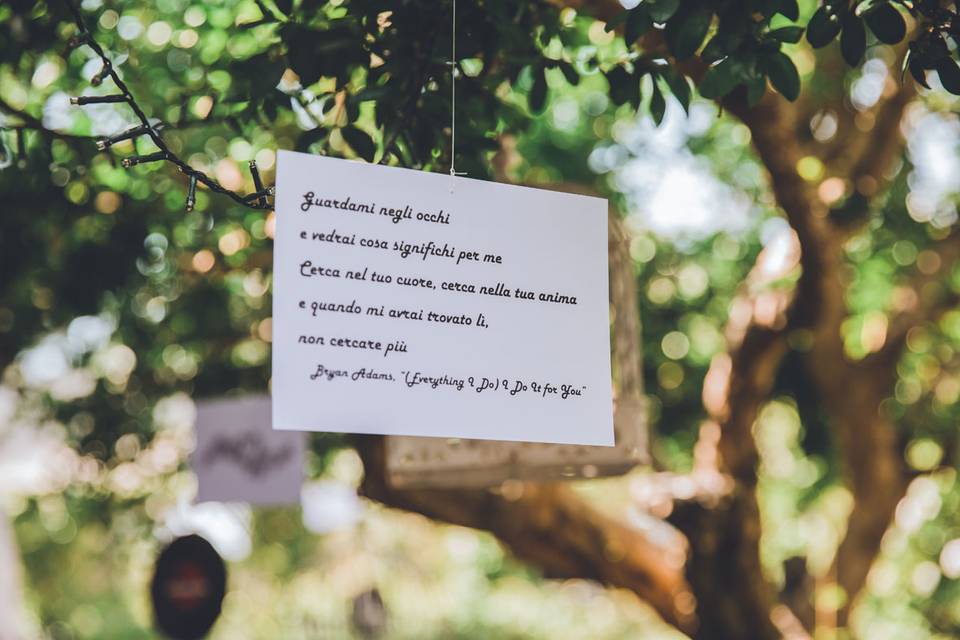 Guardami negli occhi
e vedrai cosa significhi per me
Cerca nel tuo cuore, cerca nella tua anima
e quando mi avrai trovato lì,
non cercare più
Bryan Adams, "(Everything I Do) I Do It for You"